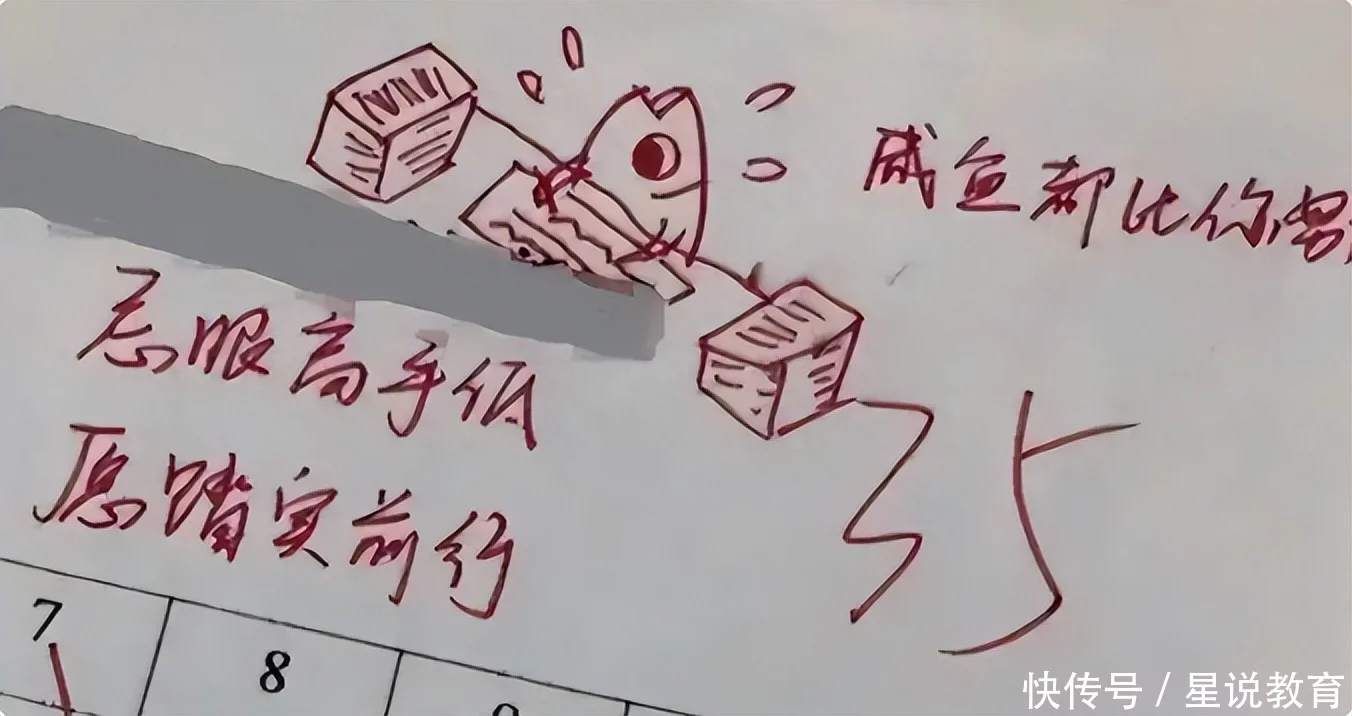 咸鱼都比你努
忌眼高手低
35
愿踏实前行
7
8
快传号 / 星说教育